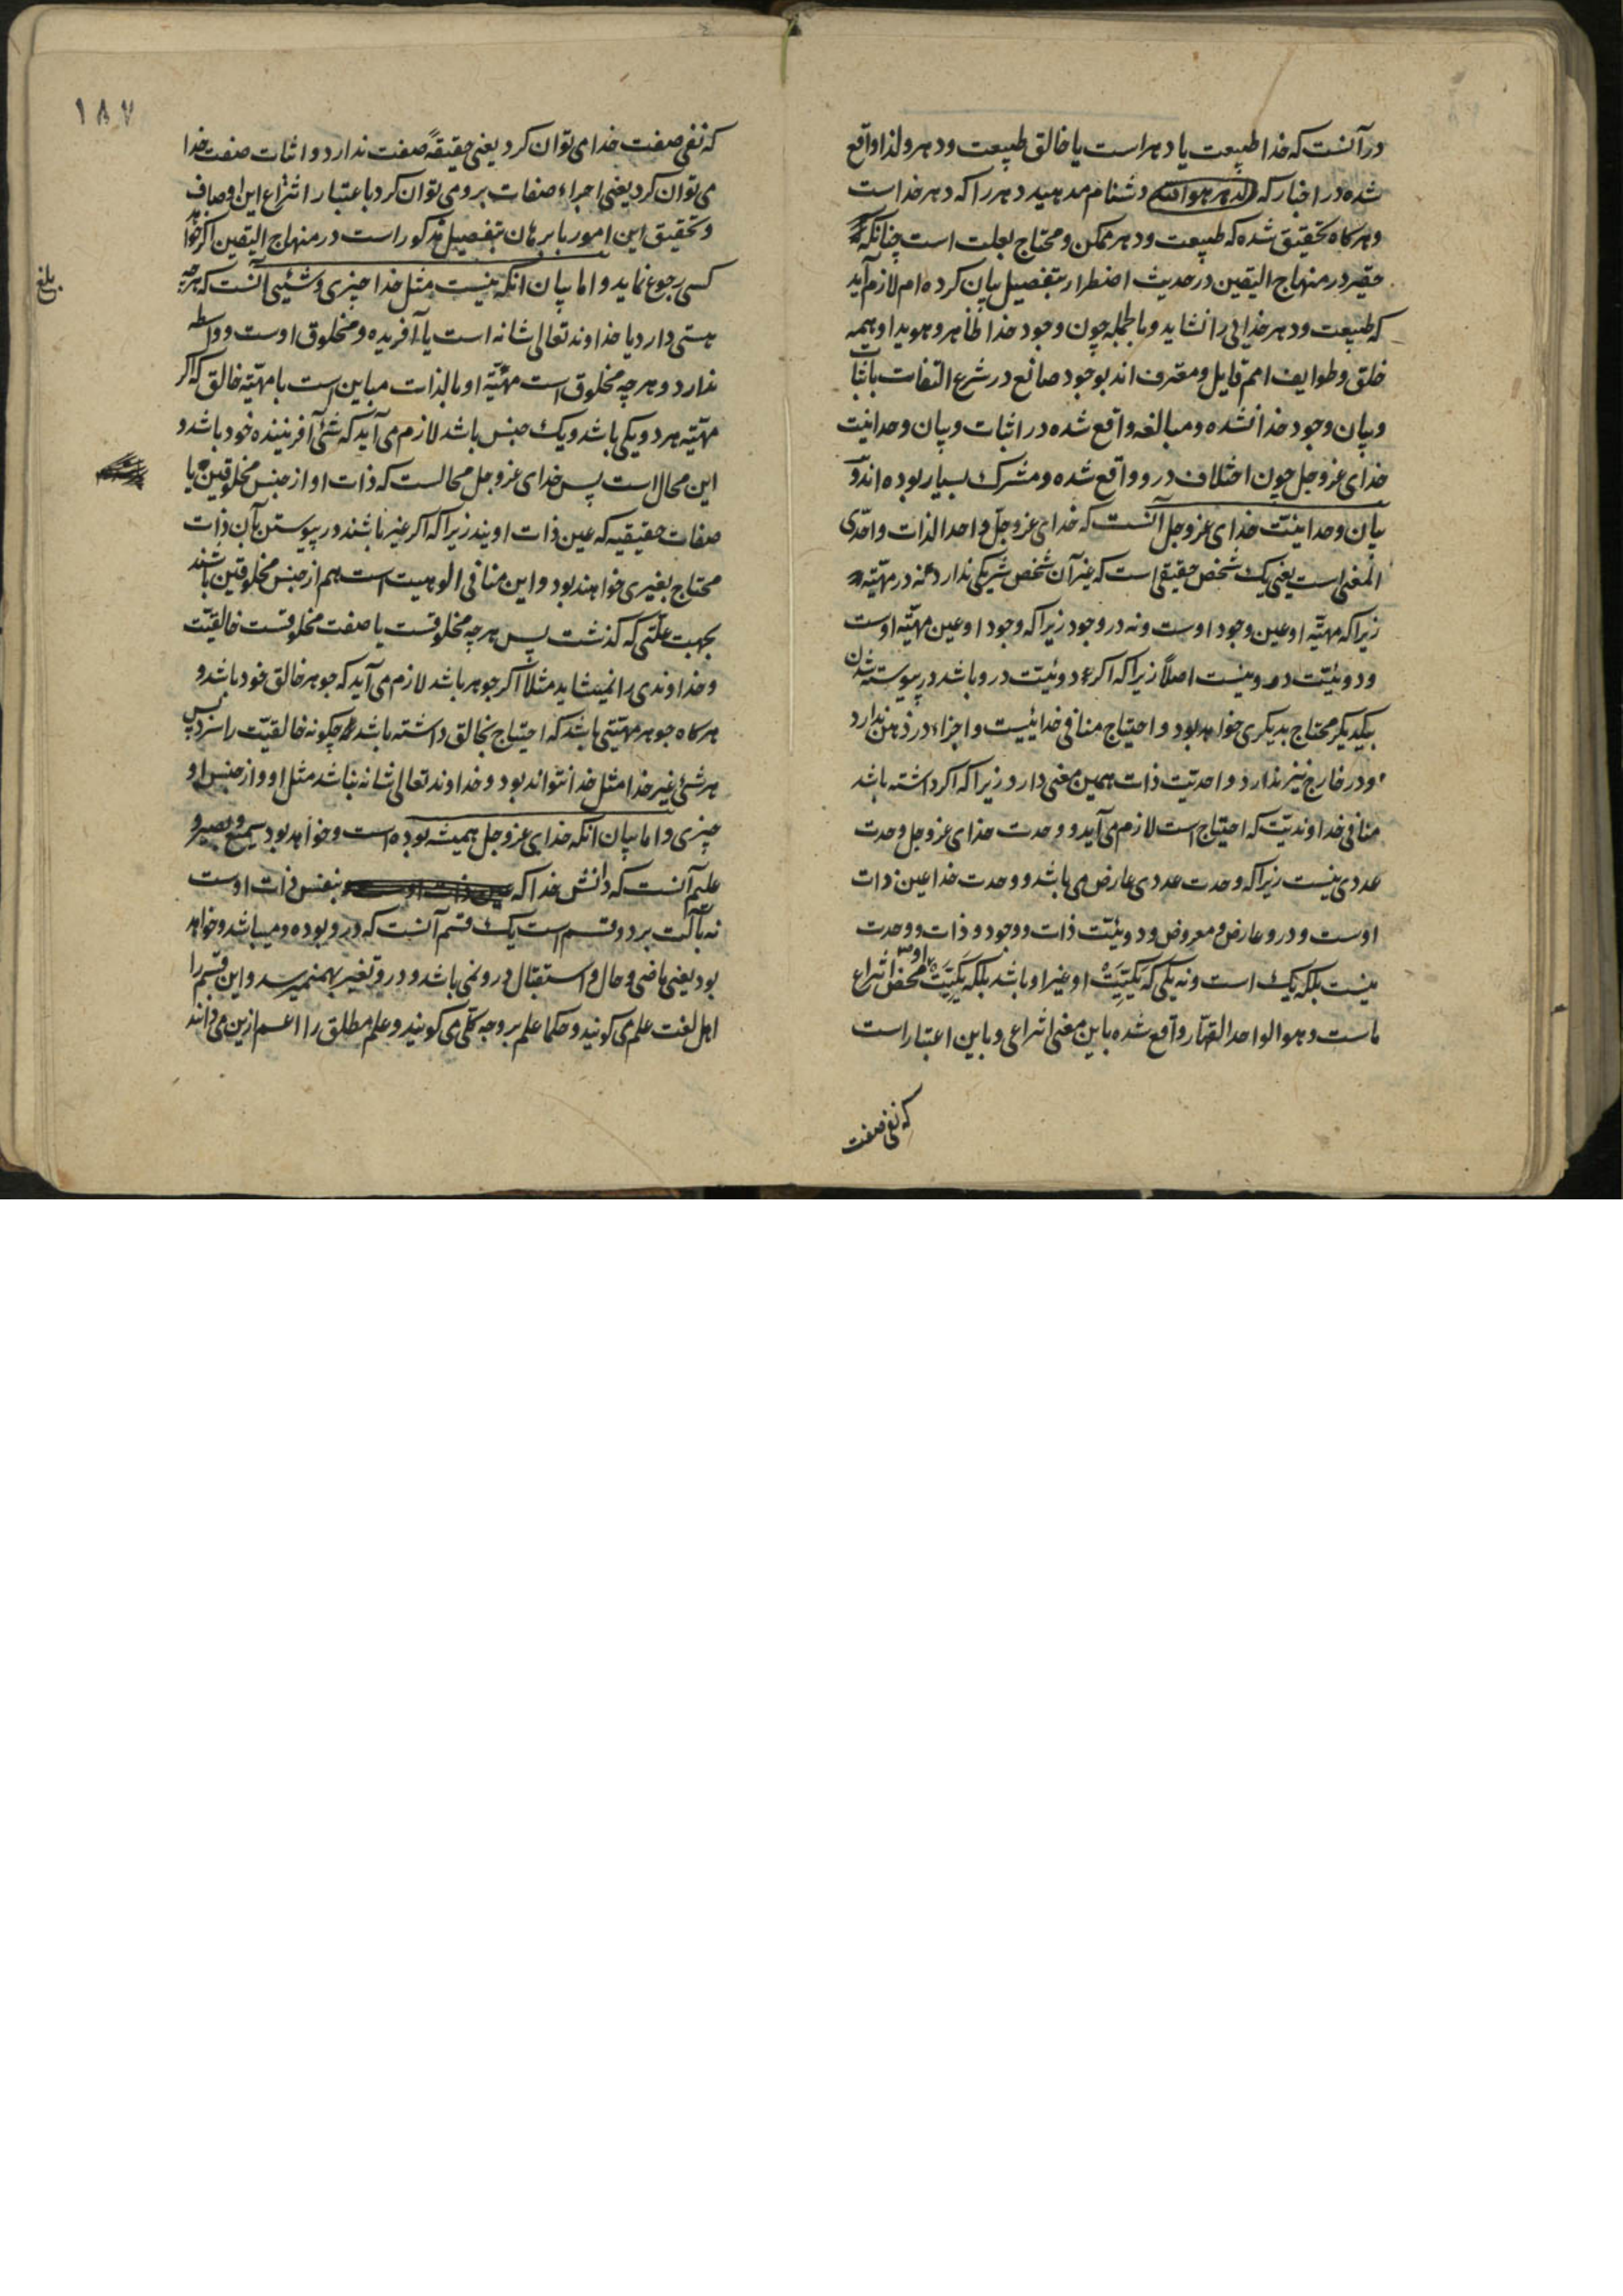 در آنست که خدا طبیعت یا دهر است یا خالق طبیعت و دهر و لذا واقع
شده در اخبار که الدهر هو الله دشنام مدهید دهر را که دهر خداست
و هرکاه تحقیق شده که طبیعت و دهر ممکن و محتاج بعلت است چنانکه
حقیر در منهاج الیقین در حدیث اضطرار بتفصیل بیان کرده‌ام لازم آید
که طبیعت و دهر خدایی را نشاید و بالجمله چون وجود خدا ظاهر و هویدا و همه
خلق و طوایف امم قایل و معترف اند بوجود صانع در شرع التفات باثبات
و بیان وجود خدا نشده و مبالغه واقع شده در اثبات و بیان وحدانیت
خدای عزوجل چون اختلاف درو واقع شده و مشرک بسیار بوده‌اند و
بیان وحدانیت خدای عزوجل آنست که خدای عزوجل واحد الذات و احدی
المعنی است یعنی یک شخص حقیقی است که غیر آن شخص شریکی ندارد نه در مهیته
زیرا که مهیته او عین وجود اوست و نه در وجود زیرا که وجود او عین مهیته اوست
و دوئیت درو نیست اصلاً زیرا که اکر دوئیت درو باشد در پیوسته شدن
بیکدیکر محتاج بدیکری خواهد بود و احتیاج منافی خدائیست و اجزاء در ذهن ندارد
و در خارج نیز ندارد و احدیت ذات همین معنی دارد زیرا که اکر داشته باشد
منافی خداوندیت که احتیاج است لازم می‌آید و وحدت خدای عزوجل وحدت
عددی نیست زیرا که وحدت عددی عارض می‌باشد و وحدت خدا عین ذات
اوست و درو عارض و معروض و دوئیت ذات و وجود و ذات و وحدت
نیست بلکه یک است و نه یکی که یکیتیت او غیر او باشد بلکه یکیتیت او محض انتزاع
ماست و هو الواحد القهار واقع شده باین معنی انتزاعی و باین اعتبار است
که نفی صفت
۱۸۷
که نفی صفت خدا می‌توان کرد یعنی حقیقةً صفت ندارد و اثبات صفت خدا
می‌توان کرد یعنی اجراء صفات برو می‌توان کرد باعتبار انتزاع این اوصاف
و تحقیق این امور با برهان بتفصیل مذکور است در منهاج الیقین اکر خواهد
کسی رجوع نماید و اما بیان انکه نیست مثل خدا چیزی و شیئی آنست که هرچه
هستی دارد یا خداوند تعالی شانه است یا آفریده و مخلوق اوست و واسطه
ندارد و هرچه مخلوق است مهیّته او بالذات مباین است با مهیّته خالق که اکر
مهیّته هر دو یکی باشد و یک جنس باشد لازم می‌آید که شئ آفریننده خود باشد و
این محال است پس خدای عزوجل محالست که ذات او از جنس مخلوقین یا
صفات حقیقیه که عین ذات اویند زیرا که اکر غیر باشند در پیوستن بآن ذات
محتاج بغیری خواهند بود و این منافی الوهیت است هم از جنس مخلوقین باشند
بجهت علتی که کذشت پس هرچه مخلوقست یا صفت مخلوقست خالقیت
و خداوندی را نمیشاید مثلاً اکر جوهر باشد لازم می‌آید که جوهر خالق خود باشد و
هرکاه جوهر مهیّتی باشد که احتیاج بخالق داشته باشد چکونه خالقیت را سزد پس
هر شئ غیر خدا مثل خدا نتواند بود و خداوند تعالی شانه نباشد مثل او و از جنس او
چیزی و اما بیان انکه خدای عزوجل همیشه بوده است و خواهد بود سمیع و بصیر و
علیم آنست که دانش خدا که عین ذات اوست بنفس ذات اوست
نه بآلت بر دو قسم است یک قسم آنست که درو بوده و میباشد و خواهد
بود یعنی ماضی و حال و استقبال درو نمی باشد و درو تغیر بهم نمیرسد و این قسم را
اهل لغت علم می کویند و حکما علم بر وجه کلی می کویند و علم مطلق را اعم ازین می دانند
بلغ